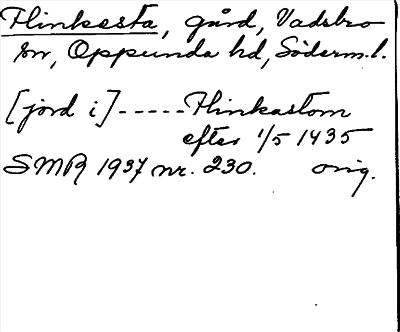 Flinkesta, gård, Vadsbro
sn, Oppunda hd, Söderm.l.
[jord i] ----- Flinkastom
efter 1/5 1435
SMR 1937 nr. 230. orig.